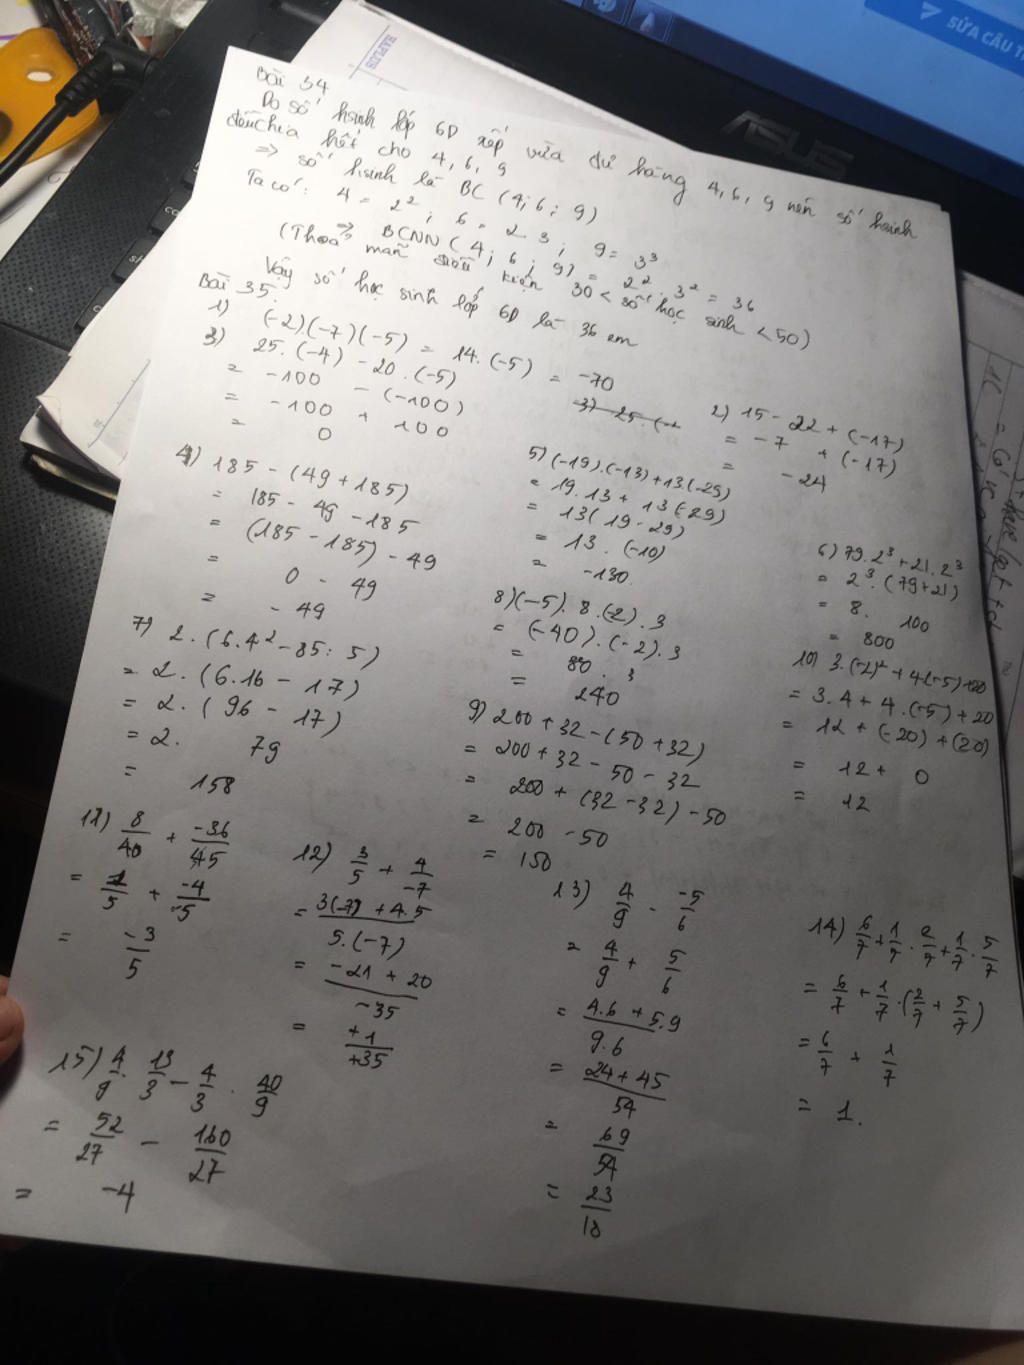 Bài 34
Do số hsinh lớp 6D xếp vừa đủ hàng 4, 6, 9 nên số hsinh
đều chia hết cho 4, 6, 9
=> số hsinh là BC (4; 6; 9)
Ta có: 4 = 2²; 6 = 2.3; 9 = 3³
=> BCNN (4; 6; 9) = 2² . 3² = 36
(Thoả mãn điều kiện 30 < số học sinh < 50)
Vậy số học sinh lớp 6D là 36 em
Bài 35.
1) (-2).(-7)(-5) = 14.(-5) = -70
3) 25.(-4) - 20.(-5)
= -100 - (-100)
= -100 + 100
= 0
2) 15 - 22 + (-17)
= -7 + (-17)
= -24
4) 185 - (49 + 185)
= 185 - 49 - 185
= (185 - 185) - 49
= 0 - 49
= -49
5) (-19).(-13) + 13(-29)
= 19.13 + 13(-29)
= 13(19 - 29)
= 13.(-10)
= -130
6) 79.2³ + 21.2³
= 2³.(79+21)
= 8. 100
= 800
7) 2.(6.4² - 85:5)
= 2.(6.16 - 17)
= 2.(96 - 17)
= 2. 79
= 158
8) (-5).8.(-2).3
= (-40).(-2).3
= 80.3
= 240
9) 200 + 32 - (50 + 32)
= 200 + 32 - 50 - 32
= 200 + (32 - 32) - 50
= 200 - 50
= 150
10) 3.(-2)² + 4(-5) + 20
= 3.4 + 4.(-5) + 20
= 12 + (-20) + (20)
= 12 + 0
= 12
11) 8/40 + -36/45
= 1/5 + -4/5
= -3/5
12) 3/5 + 4/-7
= 3(-7) + 4.5 / 5.(-7)
= -21 + 20 / -35
= +1/+35
13) 4/9 - -5/6
= 4/9 + 5/6
= 4.6 + 5.9 / 9.6
= 24 + 45 / 54
= 69/54
= 23/18
14) 6/7 + 1/7 . 2/7 + 1/7 . 5/7
= 6/7 + 1/7 . (2/7 + 5/7)
= 6/7 + 1/7
= 1.
15) 4/9 . 13/3 - 4/3 . 40/9
= 52/27 - 160/27
= -4
ASUS
SỬA CÂU